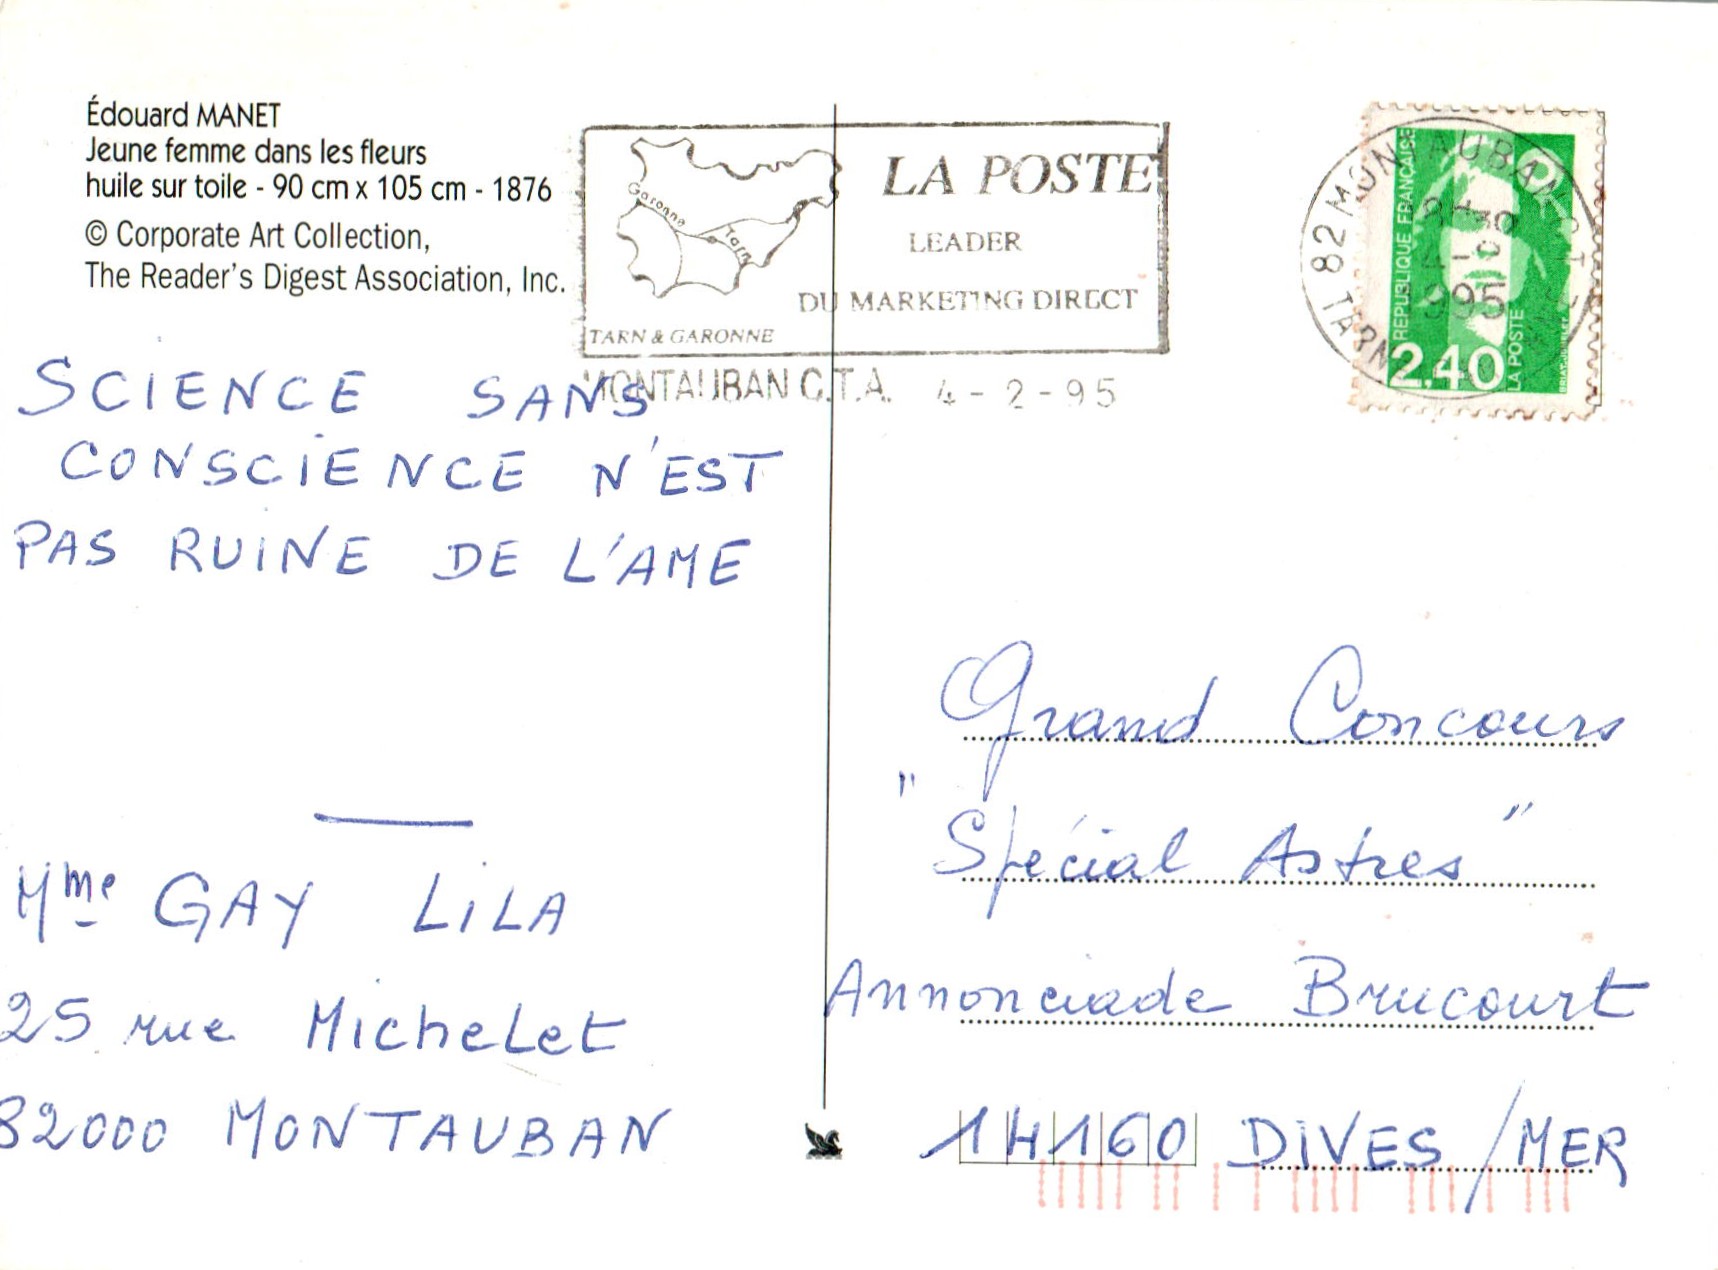 Édouard MANET
Jeune femme dans les fleurs
huile sur toile - 90 cm x 105 cm - 1876
© Corporate Art Collection,
The Reader's Digest Association, Inc.
Garonne
Tarn
LA POSTE
LEADER
DU MARKETING DIRECT
TARN & GARONNE
MONTAUBAN C.T.A. 4-2-95
82 MONTAUBAN
TARN
RÉPUBLIQUE FRANÇAISE
2,40
LA POSTE
SCIENCE SANS
CONSCIENCE N'EST
PAS RUINE DE L'AME
Mme GAY LILA
25 rue Michelet
82000 MONTAUBAN
Grand Concours
"Spécial Astres"
Annonciade Brucourt
14160 DIVES/MER